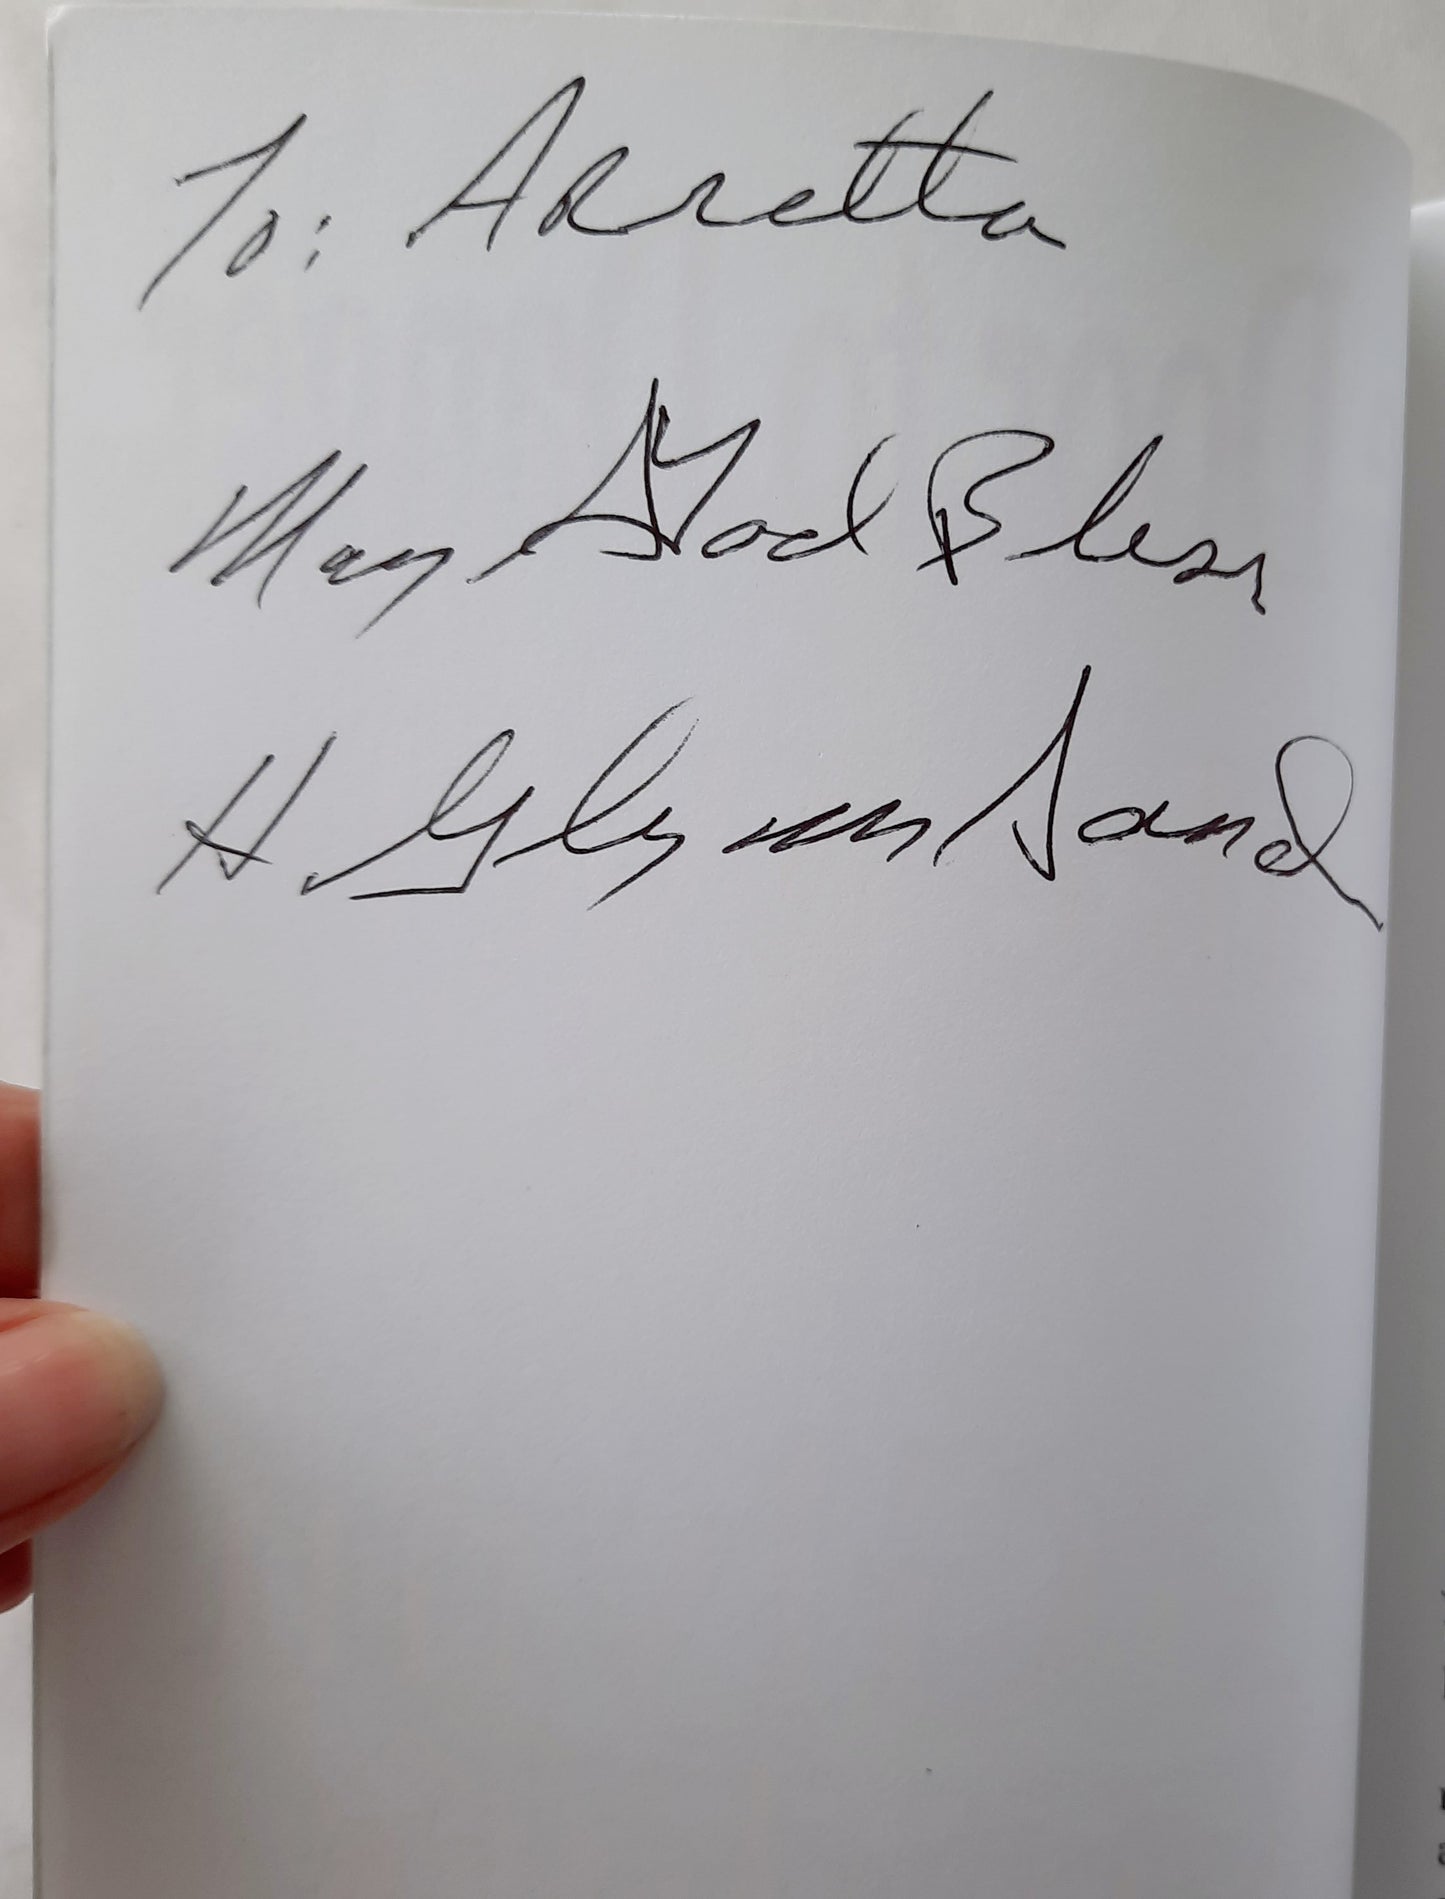 To: Arretta
May God Bless
H. Glynn Sand